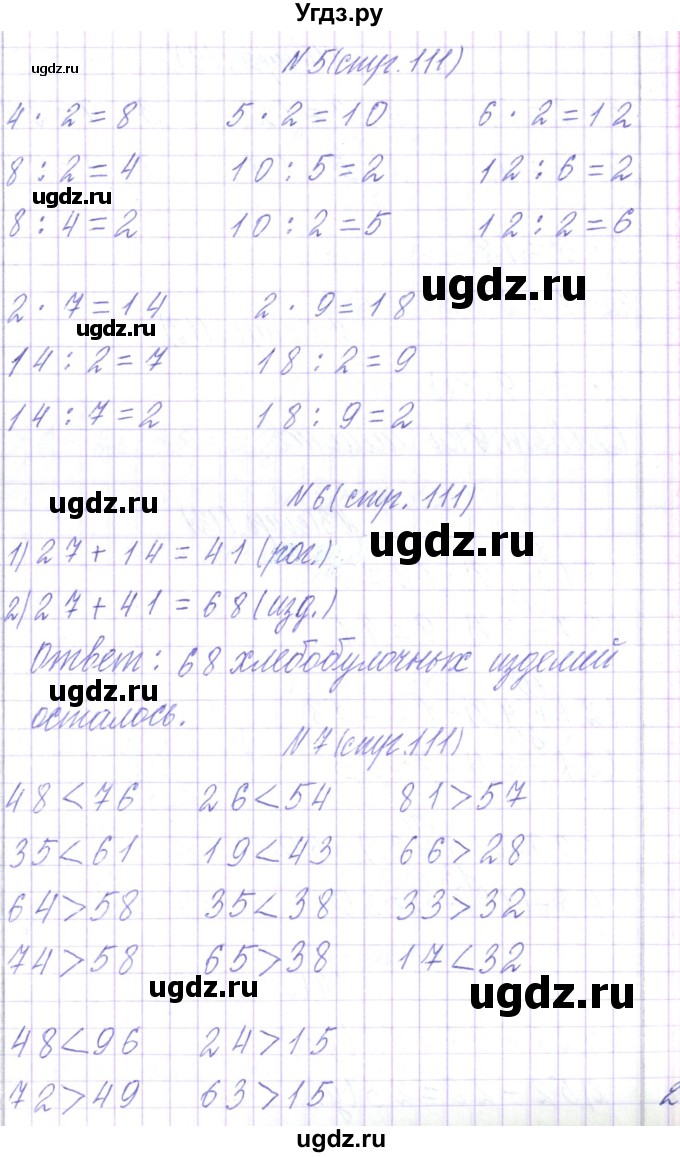 Угдз.ру
N 5 (стр. 111)
4 · 2 = 8 5 · 2 = 10 6 · 2 = 12
8 : 2 = 4 10 : 5 = 2 12 : 6 = 2
8 : 4 = 2 10 : 2 = 5 12 : 2 = 6
2 · 7 = 14 2 · 9 = 18
14 : 2 = 7 18 : 2 = 9
14 : 7 = 2 18 : 9 = 2
N 6 (стр. 111)
1) 27 + 14 = 41 (рог.)
2) 27 + 41 = 68 (изд.)
Ответ: 68 хлебобулочных изделий
осталось.
N 7 (стр. 111)
48 < 76 26 < 54 81 > 57
35 < 61 19 < 43 66 > 28
64 > 58 35 < 38 33 > 32
74 > 58 65 > 38 17 < 32
48 < 96 24 > 15
72 > 49 63 > 15
2
ugdz.ru
ugdz.ru
ugdz.ru
ugdz.ru
ugdz.ru
ugdz.ru
ugdz.ru
ugdz.ru
ugdz.ru
ugdz.ru